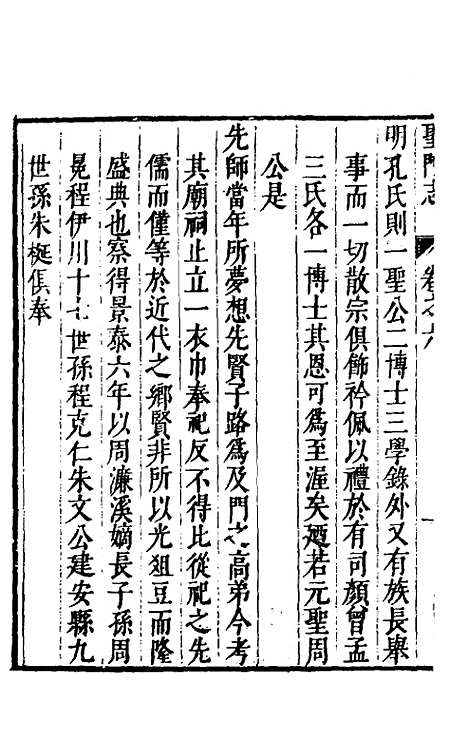 聖門志　卷之六　一
明孔氏則一聖公二博士三學錄外又有族長舉
事而一切散宗俱飾衿佩以禮於有司顏曾孟
三氏各一博士其恩可爲至渥矣廼若元聖周
公是
先師當年所夢想先賢子路爲及門之高弟今考
其廟祠止立一衣巾奉祀反不得比從祀之先
儒而僅等於近代之鄉賢非所以光俎豆而隆
盛典也察得景泰六年以周濂溪嫡長子孫周
冕程伊川十七世孫程克仁朱文公建安縣九
世孫朱梴俱奉